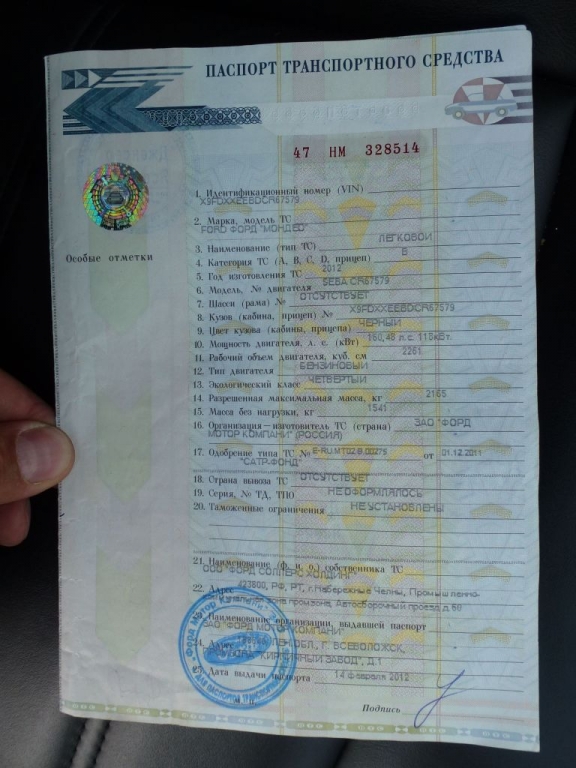 ПАСПОРТ ТРАНСПОРТНОГО СРЕДСТВА
47 НМ 328514
Особые отметки
1. Идентификационный номер (VIN)
X9FDXXEEBDCR67579
2. Марка, модель ТС
FORD ФОРД "МОНДЕО"
3. Наименование (тип ТС) ЛЕГКОВОЙ
4. Категория ТС (A, B, C, D, прицеп) B
5. Год изготовления ТС 2012
6. Модель, № двигателя SEBA CR67579
7. Шасси (рама) № ОТСУТСТВУЕТ
8. Кузов (кабина, прицеп) № X9FDXXEEBDCR67579
9. Цвет кузова (кабины, прицепа) ЧЕРНЫЙ
10. Мощность двигателя, л. с. (кВт) 160,48 л.с. 118кВт.
11. Рабочий объем двигателя, куб. см 2261
12. Тип двигателя БЕНЗИНОВЫЙ
13. Экологический класс ЧЕТВЕРТЫЙ
14. Разрешенная максимальная масса, кг 2165
15. Масса без нагрузки, кг 1541
16. Организация–изготовитель ТС (страна) ЗАО "ФОРД
МОТОР КОМПАНИ" (РОССИЯ)
17. Одобрение типа ТС № E-RU.MT02.B.00275 от 01.12.2011
"САТР-ФОНД"
18. Страна вывоза ТС ОТСУТСТВУЕТ
19. Серия, № ТД, ТПО НЕ ОФОРМЛЯЛОСЬ
20. Таможенные ограничения НЕ УСТАНОВЛЕНЫ
21. Наименование (ф. и. о.) собственника ТС
ООО "ФОРД СОЛЛЕРС ХОЛДИНГ"
22. Адрес 423800, РФ, РТ, г.Набережные Челны, Промышленно-
зона промзона, Автосборочный проезд,д.60
23. Наименование организации, выдавшей паспорт
ЗАО "ФОРД МОТОР КОМПАНИ"
24. Адрес ОБЛ., Г. ВСЕВОЛОЖСК,
КИРПИЧНЫЙ ЗАВОД", Д.1
25. Дата выдачи паспорта 14 февраля 2012
Подпись